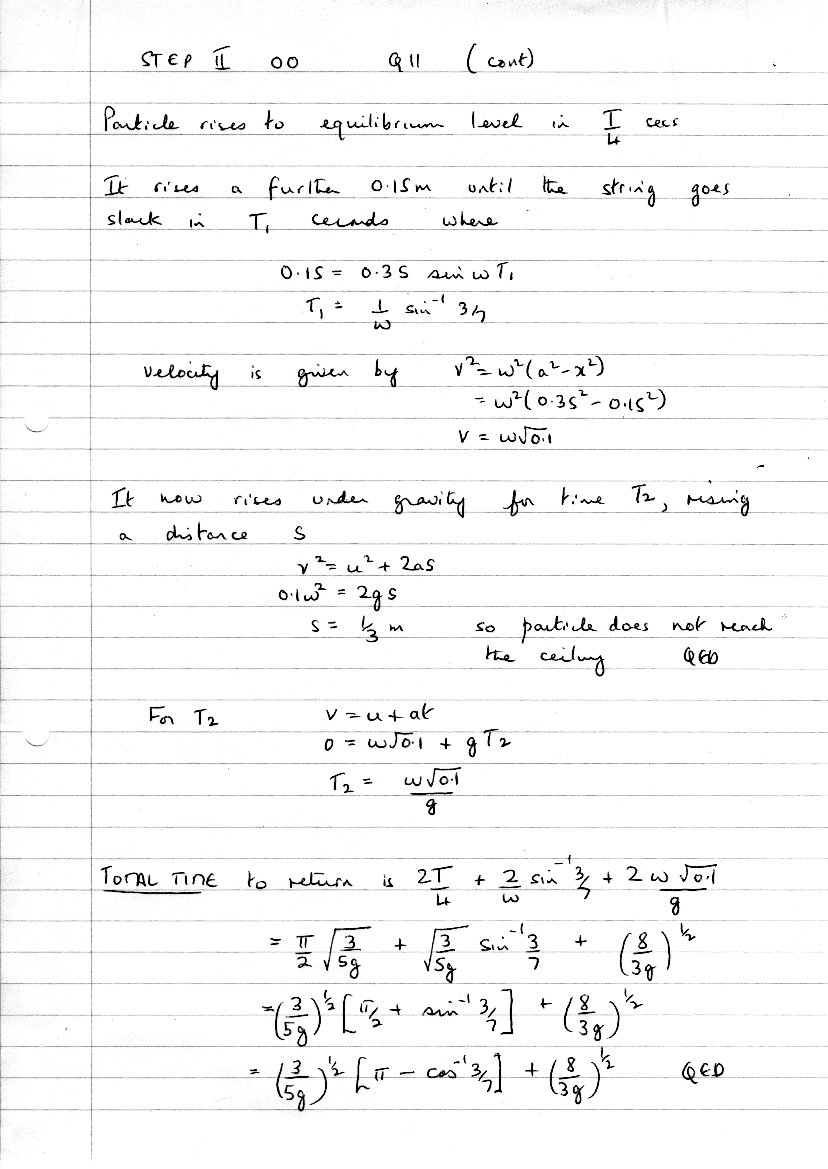 STEP II 00 Q11 (cont)
Particle rises to equilibrium level in T/4 secs
It rises a further 0.15m until the string goes
slack in T₁ seconds where
0.15 = 0.35 sin ω T₁
T₁ = 1/ω sin⁻¹ 3/7
velocity is given by v² = ω²(a² - x²)
= ω²(0.35² - 0.15²)
v = ω√0.1
It now rises under gravity for time T₂, rising
a distance S
v² = u² + 2as
0.1ω² = 2gs
s = 1/3 m so particle does not reach
the ceiling QED
For T₂ v = u + at
0 = ω√0.1 + gT₂
T₂ = ω√0.1/g
TOTAL TIME to return is 2T/4 + 2/ω sin⁻¹ 3/7 + 2ω√0.1/g
= π/2 √(3/5g) + √(3/5g) sin⁻¹ 3/7 + (8/3g)^½
= (3/5g)^½ [π/2 + sin⁻¹ 3/7] + (8/3g)^½
= (3/5g)^½ [π - cos⁻¹ 3/7] + (8/3g)^½ QED